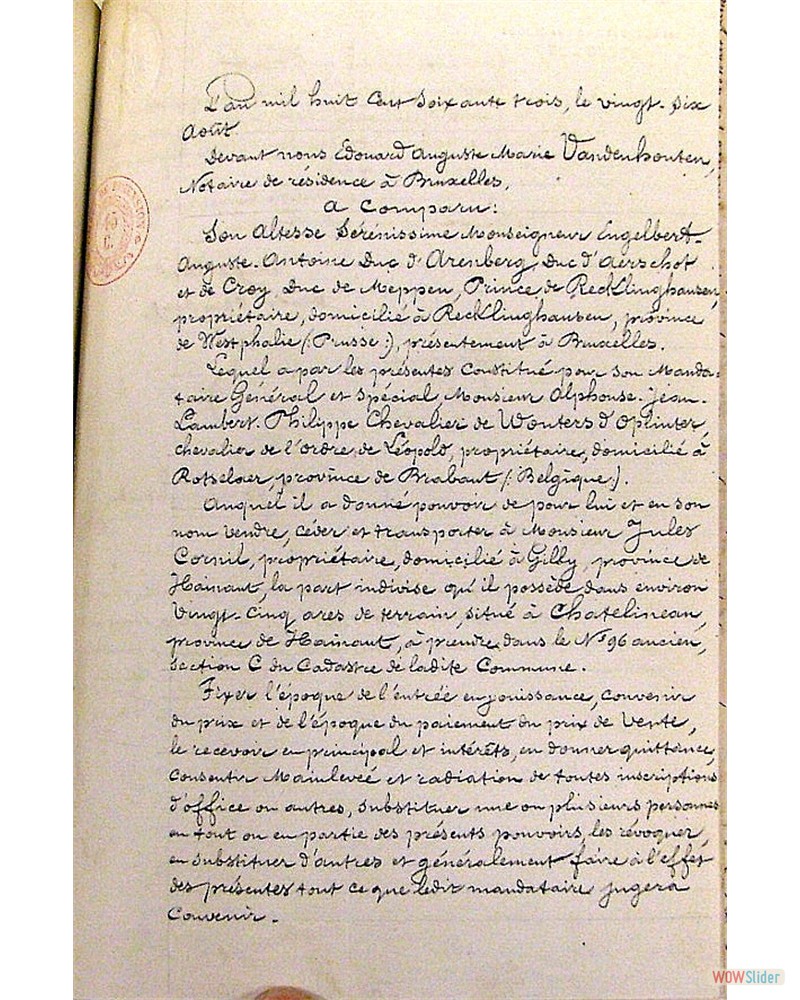 L'an mil huit cent soixante trois, le vingt-six
Août.
Devant nous Edouard Auguste Marie Vandenhouten,
Notaire de résidence à Bruxelles,
a comparu:
Son Altesse Sérénissime Monseigneur Engelbert-
Auguste-Antoine Duc d'Arenberg, Duc d'Aerschot
et de Croy, Duc de Meppen, Prince de Recklinghausen,
propriétaire, domicilié à Recklinghausen, province
de Westphalie (:Prusse:), présentement à Bruxelles.
Lequel a par les présentes constitué pour son Manda=
taire Général et spécial Monsieur Alphonse-Jean-
Lambert-Philippe Chevalier de Wouters d'Oplinter,
chevalier de l'ordre de Léopold, propriétaire, domicilié à
Rotselaer, province de Brabant (:Belgique:).
Auquel il a donné pouvoir de pour lui et en son
nom vendre, céder et transporter à Monsieur Jules
Cornil, propriétaire, domicilié à Gilly, province de
Hainaut, la part indivise qu'il possède dans environ
vingt-cinq ares de terrain, situé à Chatelineau,
province de Hainaut, à prendre dans le N° 96 ancien,
section C du Cadastre de ladite Commune.
Fixer l'époque de l'entrée en jouissance, convenir
du prix et de l'époque du paiement du prix de vente,
le recevoir en principal et intérêts, en donner quittance,
consentir Mainlevée et radiation de toutes inscriptions
d'office ou autres, substituer une ou plusieurs personnes
en tout ou en partie des présents pouvoirs, les révoquer,
en substituer d'autres et généralement faire à l'effet
des présentes tout ce que ledit mandataire jugera
convenir.
WOWSlider